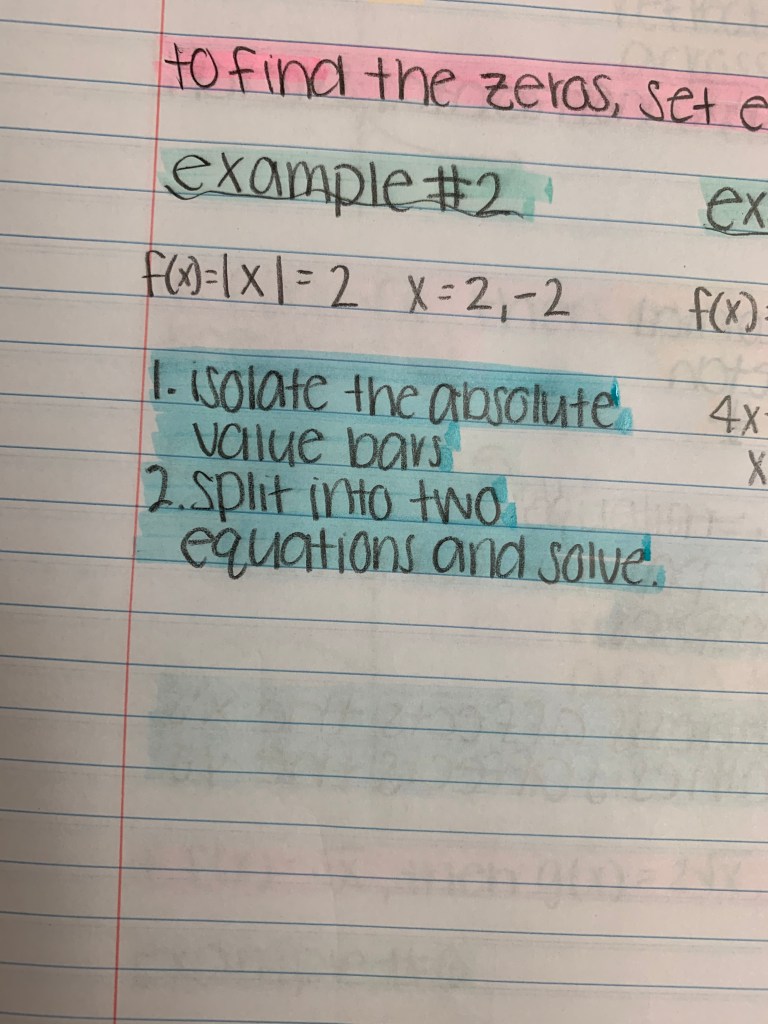 to find the zeros, set e
example #2
ex
f(x)=|x|=2 x=2,-2
f(x)=
1. isolate the absolute
value bars
4x-
x
2. split into two
equations and solve.